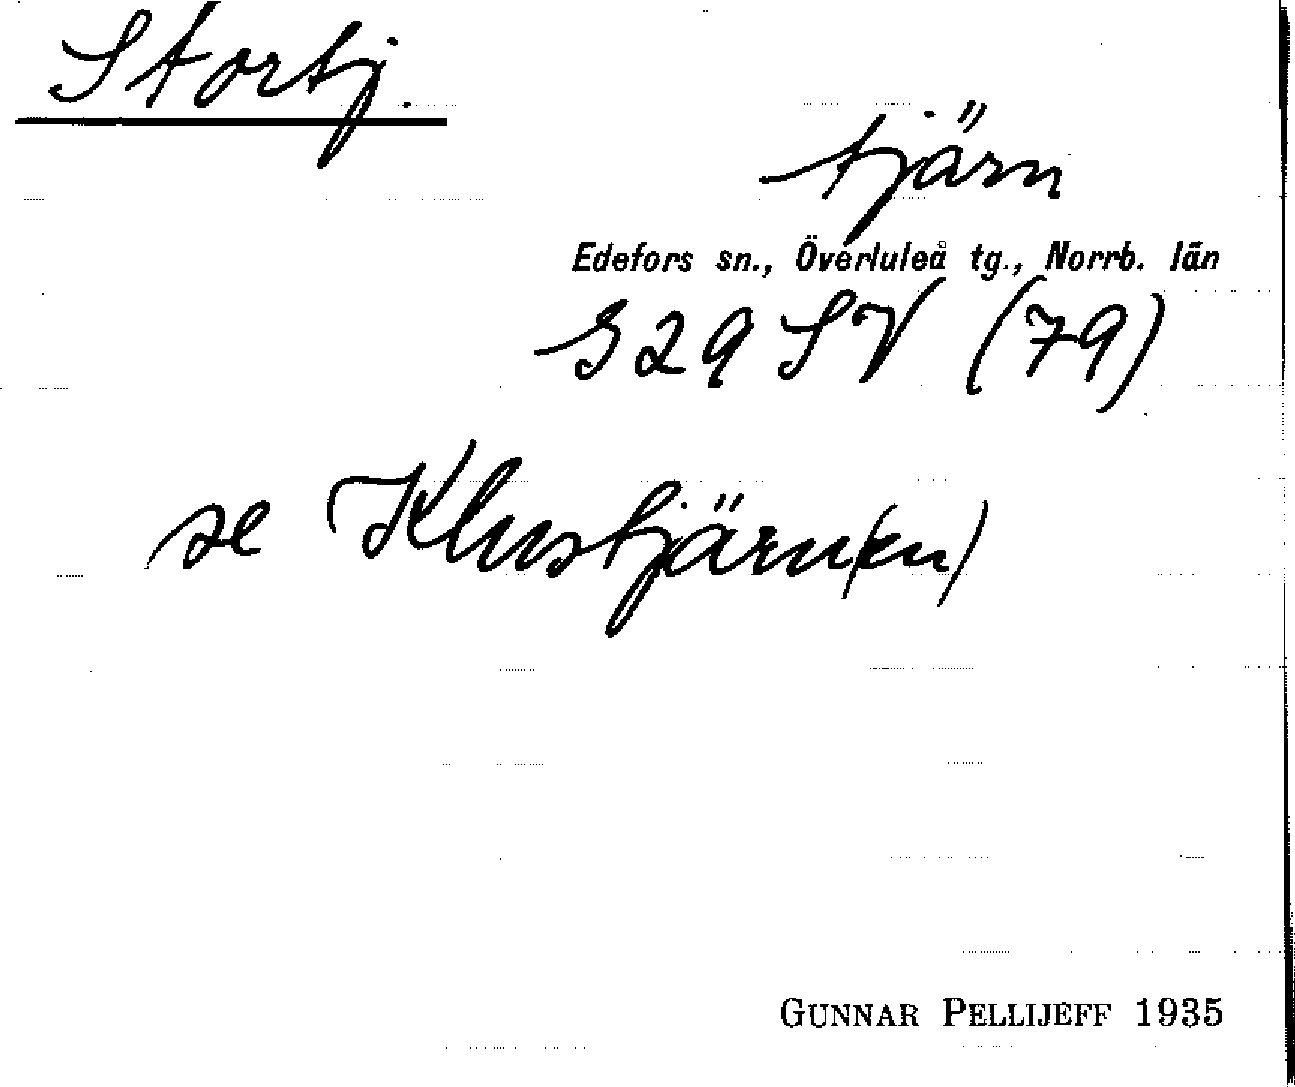 Stortj.
tjärn
Edefors sn., Överluleå tg., Norrb. län
S29SV (79)
se Klustjärn(en)
GUNNAR PELLIJEFF 1935